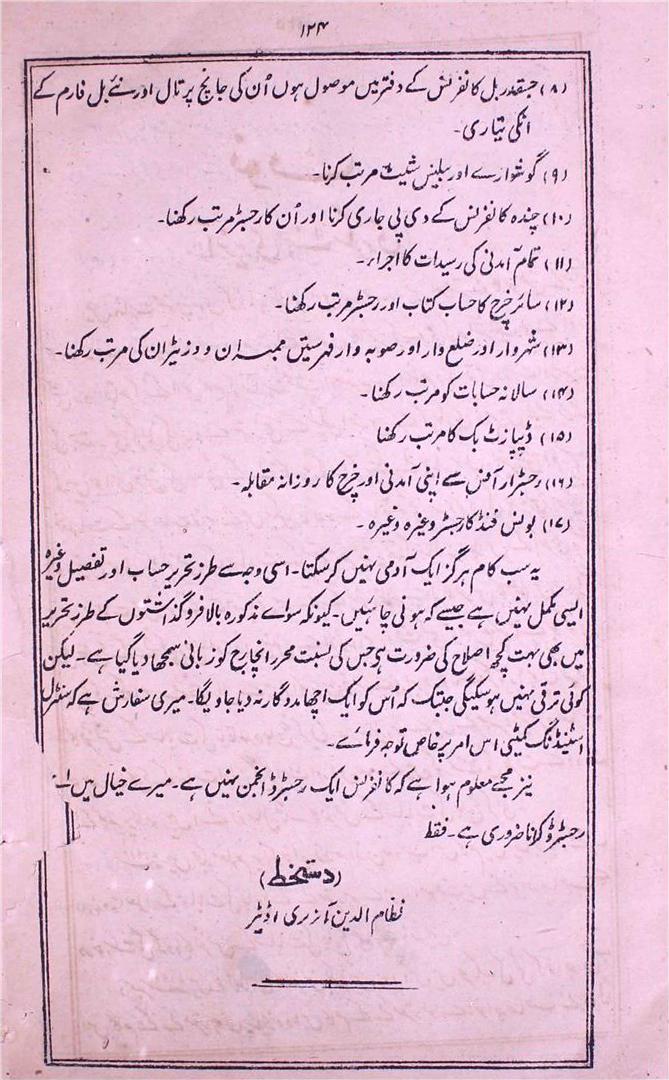 ۱۲۴
(۸) جسقدر بل کانفرنس کے دفتر میں موصول ہوں اُن کی جانچ پرتال اور نئے بل فارم کے
انکی تیاری۔
(۹) گوشوارے اور بیلنس شیٹ مرتب کرنا۔
(۱۰) چندہ کانفرنس کے وی پی جاری کرنا اور اُن کا رجسٹر مرتب رکھنا۔
(۱۱) تمام آمدنی کی رسیدات کا اجراء۔
(۱۲) سائر خرچ کا حساب کتاب اور رجسٹر مرتب رکھنا۔
(۱۳) شہر وار اور ضلع وار اور صوبہ وار فہرستیں ممبران و وزیٹران کی مرتب رکھنا۔
(۱۴) سالانہ حسابات کو مرتب رکھنا۔
(۱۵) ڈیپازٹ بک کا مرتب رکھنا
(۱۶) رجسٹرار آفس سے اپنی آمدنی اور خرچ کا روزانہ مقابلہ۔
(۱۷) بونس فنڈ کا رجسٹر وغیرہ وغیرہ۔
یہ سب کام ہرگز ایک آدمی نہیں کر سکتا۔ اسی وجہ سے طرز تحریر حساب اور تفصیل وغیرہ
ایسی مکمل نہیں ہے جیسے کہ ہونی چاہئیں۔ کیونکہ سواے مذکورہ بالا فروگذاشتوں کے طرز تحریر
میں بھی بہت کچھ اصلاح کی ضرورت ہی جس کی نسبت محرر انچارج کو زبانی سمجھا دیا گیا ہے۔ لیکن
کوئی ترقی نہیں ہو سکیگی جبتک کہ اُس کو ایک اچھا مددگار نہ دیا جاویگا۔ میری سفارش ہے کہ سنٹرل
اسٹینڈنگ کمیٹی اس امر پر خاص توجہ فرمائے۔
نیز مجھے معلوم ہوا ہے کہ کانفرنس ایک رجسٹرڈ انجمن نہیں ہے۔ میرے خیال میں
رجسٹرڈ کرانا ضروری ہے۔ فقط
(دستخط)
نظام الدین آنریری اڈیٹر